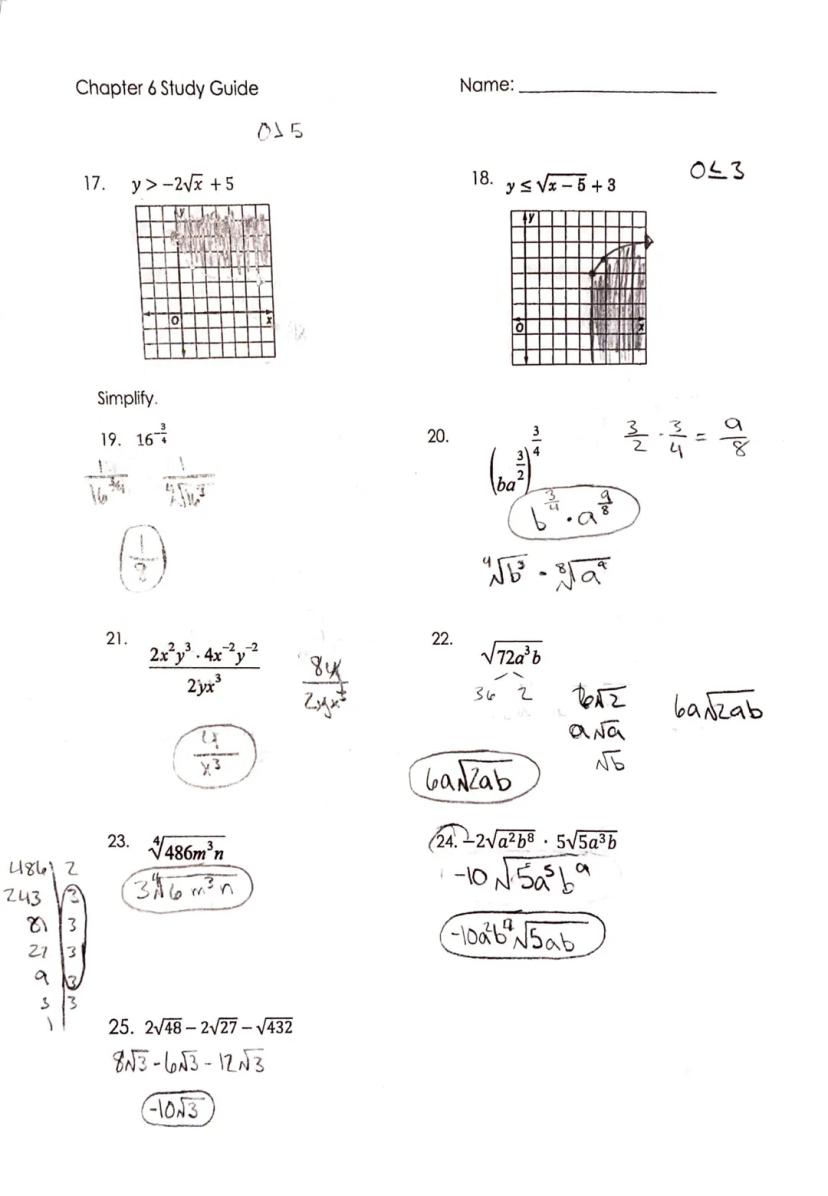 Chapter 6 Study Guide
Name: ____________________
0≥5
17. y > −2√x + 5
y
O
x
18. y ≤ √(x − 5) + 3
0≤3
y
O
x
Simplify.
19. 16^(−3/4)
1/16^(3/4) 1/⁴√16³
1/8
20. (ba^(3/2))^(3/4)
3/2 · 3/4 = 9/8
b^(3/4) · a^(9/8)
⁴√b³ · ⁸√a⁹
21. (2x²y³ · 4x⁻²y⁻²)/(2yx³)
8y/2yx³
4/x³
22. √(72a³b)
36 2
6√2
a√a
√b
6a√2ab
6a√2ab
23. ⁴√(486m³n)
3⁴√6m³n
486 2
243 3
81 3
27 3
9 3
3 3
1
24. −2√(a²b⁸) · 5√(5a³b)
-10√5a⁵b⁹
-10a²b⁴√5ab
25. 2√48 − 2√27 − √432
8√3 - 6√3 - 12√3
-10√3